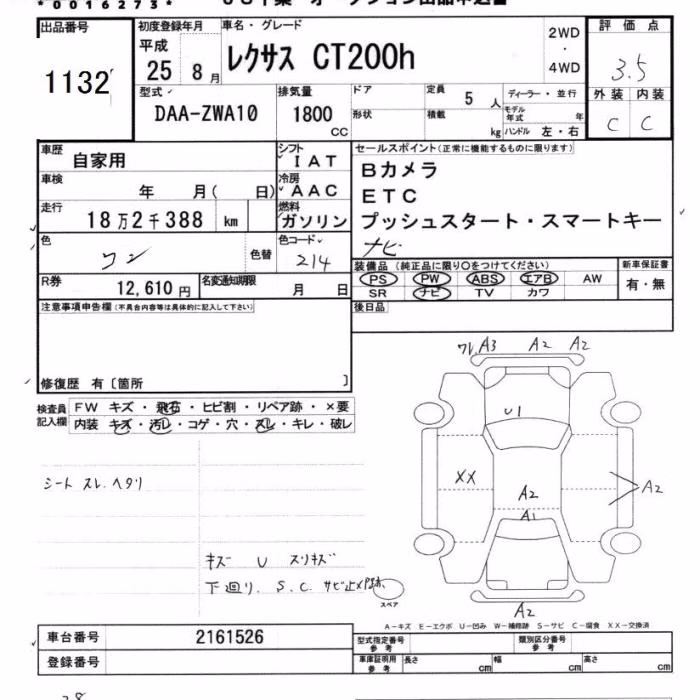 *0016273*
出品番号 初度登録年月 車名・グレード 2WD ・ 4WD 評価点
1132 平成 25 8月 レクサス CT200h 3.5
型式 DAA-ZWA10 排気量 1800 CC ドア 形状 定員 5人 積載 kg ディーラー・並行 モデル年式 年 ハンドル 左・右 外装 内装 C C
車歴 自家用 シフト IAT セールスポイント(正常に機能するものに限ります)
車検 年 月( 日) 冷房 AAC Bカメラ
ETC
走行 18万2千388 km 燃料 ガソリン プッシュスタート・スマートキー
色 色替 色コード 214 ナビ
R券 12,610円 名変通知期限 月 日
装備品(純正品に限り○をつけてください) 新車保証書
PS PW ABS エアB AW 有・無
SR ナビ TV カワ
注意事項申告欄(不具合内容等は具体的に記入して下さい) 後日品
修復歴 有〔箇所 〕
検査員記入欄 FW キズ・飛石・ヒビ割・リペア跡・×要
内装 キズ・汚レ・コゲ・穴・スレ・キレ・破レ
ワレ,A3 A2 A2
U1
XX A2 A2
A1
シート スレ,ヘタリ
キズ U スリキズ
下廻り. S.C. サビ止メ跡.
スペア
A2
A-キズ E-エクボ U-凹み W-補修跡 S-サビ C-腐食 XX-交換済
車台番号 2161526
登録番号
型式指定番号 参考 類別区分番号 参考
車庫証明用 参考 長さ cm 幅 cm 高さ cm